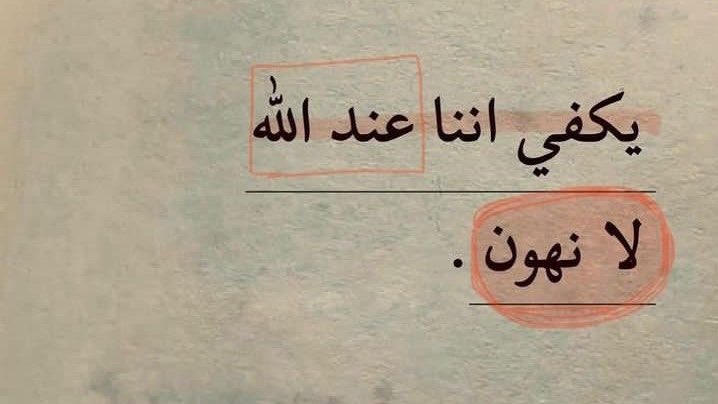 يكفي اننا عند الله
لا نهون .